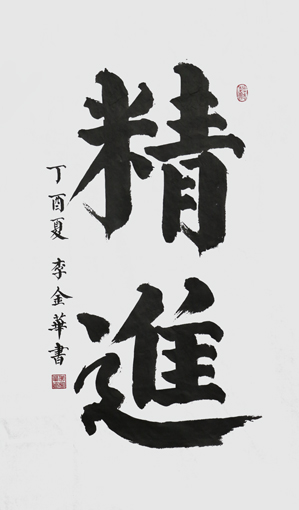 精進
丁酉夏 李金華書